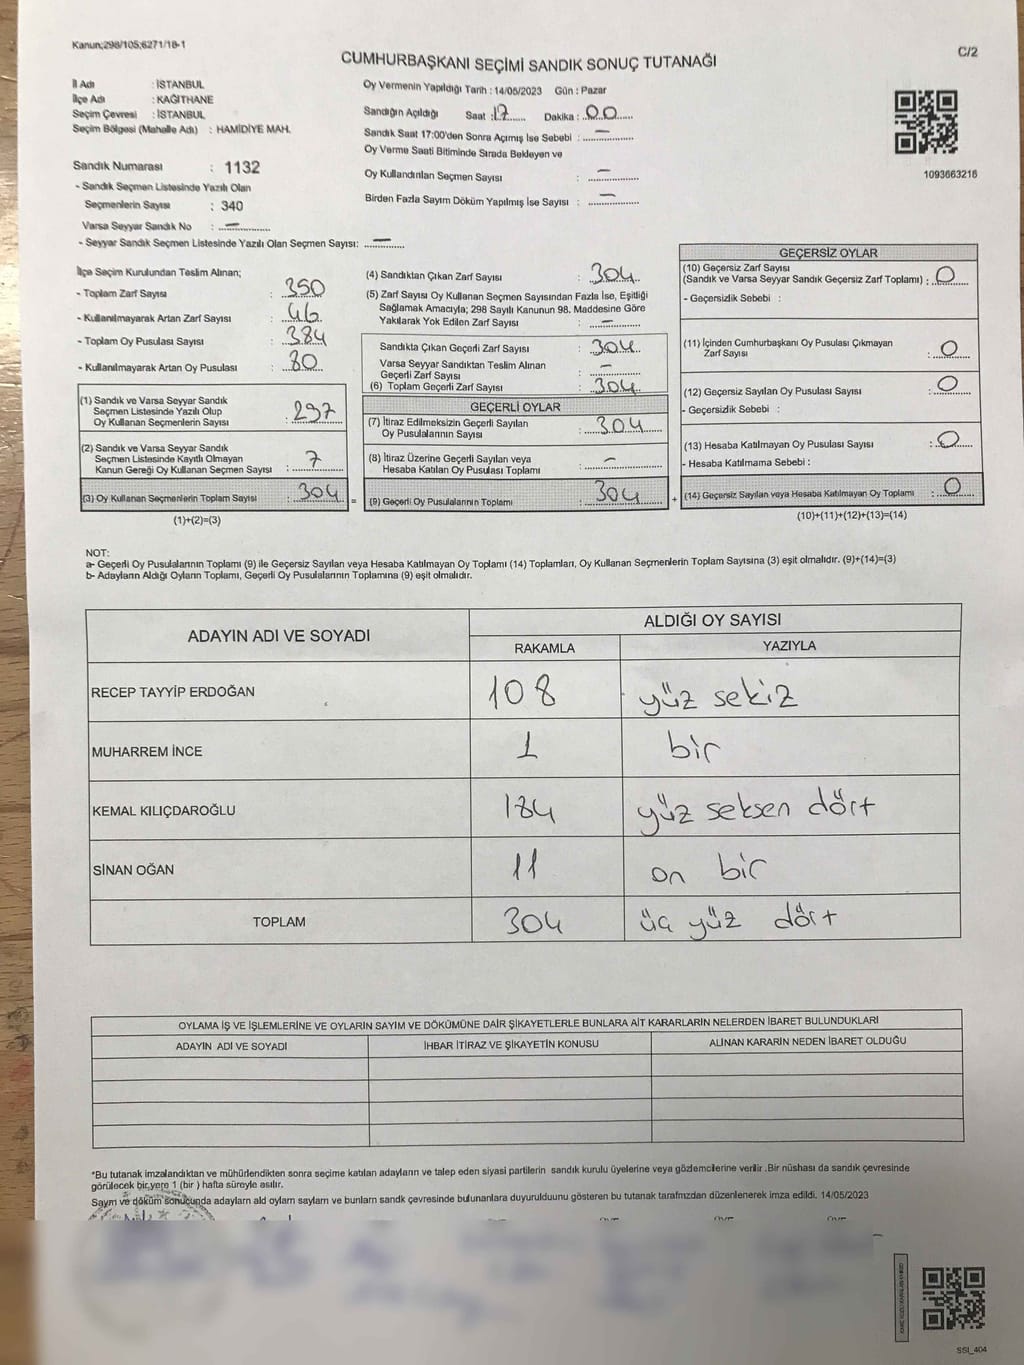 Kanun;298/105;6271/18-1
C/2
CUMHURBAŞKANI SEÇİMİ SANDIK SONUÇ TUTANAĞI
İl Adı : İSTANBUL
İlçe Adı : KAĞITHANE
Seçim Çevresi : İSTANBUL
Seçim Bölgesi (Mahalle Adı) : HAMİDİYE MAH.
Oy Vermenin Yapıldığı Tarih : 14/05/2023 Gün : Pazar
Sandığın Açıldığı Saat : 17 Dakika : 00
Sandık Saat 17:00'den Sonra Açmış İse Sebebi : –
Oy Verme Saati Bitiminde Sırada Bekleyen ve
Oy Kullandırılan Seçmen Sayısı : –
Birden Fazla Sayım Döküm Yapılmış İse Sayısı : –
1093663216
Sandık Numarası : 1132
- Sandık Seçmen Listesinde Yazılı Olan
Seçmenlerin Sayısı : 340
Varsa Seyyar Sandık No : –
- Seyyar Sandık Seçmen Listesinde Yazılı Olan Seçmen Sayısı: –
İlçe Seçim Kurulundan Teslim Alınan;
- Toplam Zarf Sayısı : 350
- Kullanılmayarak Artan Zarf Sayısı : 46
- Toplam Oy Pusulası Sayısı : 384
- Kullanılmayarak Artan Oy Pusulası : 80
(1) Sandık ve Varsa Seyyar Sandık
Seçmen Listesinde Yazılı Olup
Oy Kullanan Seçmenlerin Sayısı : 297
(2) Sandık ve Varsa Seyyar Sandık
Seçmen Listesinde Kayıtlı Olmayan
Kanun Gereği Oy Kullanan Seçmen Sayısı : 7
(3) Oy Kullanan Seçmenlerin Toplam Sayısı : 304 =
(1)+(2)=(3)
(4) Sandıktan Çıkan Zarf Sayısı : 304
(5) Zarf Sayısı Oy Kullanan Seçmen Sayısından Fazla İse, Eşitliği
Sağlamak Amacıyla; 298 Sayılı Kanunun 98. Maddesine Göre
Yakılarak Yok Edilen Zarf Sayısı : –
Sandıkta Çıkan Geçerli Zarf Sayısı : 304
Varsa Seyyar Sandıktan Teslim Alınan
Geçerli Zarf Sayısı : –
(6) Toplam Geçerli Zarf Sayısı : 304
GEÇERLİ OYLAR
(7) İtiraz Edilmeksizin Geçerli Sayılan
Oy Pusulalarının Sayısı : 304
(8) İtiraz Üzerine Geçerli Sayılan veya
Hesaba Katılan Oy Pusulası Toplamı : –
(9) Geçerli Oy Pusulalarının Toplamı : 304 +
GEÇERSİZ OYLAR
(10) Geçersiz Zarf Sayısı
(Sandık ve Varsa Seyyar Sandık Geçersiz Zarf Toplamı) : 0
- Geçersizlik Sebebi :
(11) İçinden Cumhurbaşkanı Oy Pusulası Çıkmayan
Zarf Sayısı : 0
(12) Geçersiz Sayılan Oy Pusulası Sayısı : 0
- Geçersizlik Sebebi :
(13) Hesaba Katılmayan Oy Pusulası Sayısı : 0
- Hesaba Katılmama Sebebi :
(14) Geçersiz Sayılan veya Hesaba Katılmayan Oy Toplamı : 0
(10)+(11)+(12)+(13)=(14)
NOT:
a- Geçerli Oy Pusulalarının Toplamı (9) ile Geçersiz Sayılan veya Hesaba Katılmayan Oy Toplamı (14) Toplamları, Oy Kullanan Seçmenlerin Toplam Sayısına (3) eşit olmalıdır. (9)+(14)=(3)
b- Adayların Aldığı Oyların Toplamı, Geçerli Oy Pusulalarının Toplamına (9) eşit olmalıdır.
ADAYIN ADI VE SOYADI
ALDIĞI OY SAYISI
RAKAMLA YAZIYLA
RECEP TAYYİP ERDOĞAN 108 yüz sekiz
MUHARREM İNCE 1 bir
KEMAL KILIÇDAROĞLU 184 yüz seksen dört
SİNAN OĞAN 11 on bir
TOPLAM 304 üç yüz dört
OYLAMA İŞ VE İŞLEMLERİNE VE OYLARIN SAYIM VE DÖKÜMÜNE DAİR ŞİKAYETLERLE BUNLARA AİT KARARLARIN NELERDEN İBARET BULUNDUKLARI
ADAYIN ADI VE SOYADI İHBAR İTİRAZ VE ŞİKAYETİN KONUSU ALINAN KARARIN NEDEN İBARET OLDUĞU
*Bu tutanak imzalandıktan ve mühürlendikten sonra seçime katılan adayların ve talep eden siyasi partilerin sandık kurulu üyelerine veya gözlemcilerine verilir .Bir nüshası da sandık çevresinde
görülecek bir yere 1 (bir ) hafta süreyle asılır.
Sayım ve döküm sonucunda adayların ald oyların sayların ve bunların sandk çevresinde bulunanlara duyurulduunu gösteren bu tutanak tarafımzdan düzenlenerek imza edildi. 14/05/2023
SSI_404